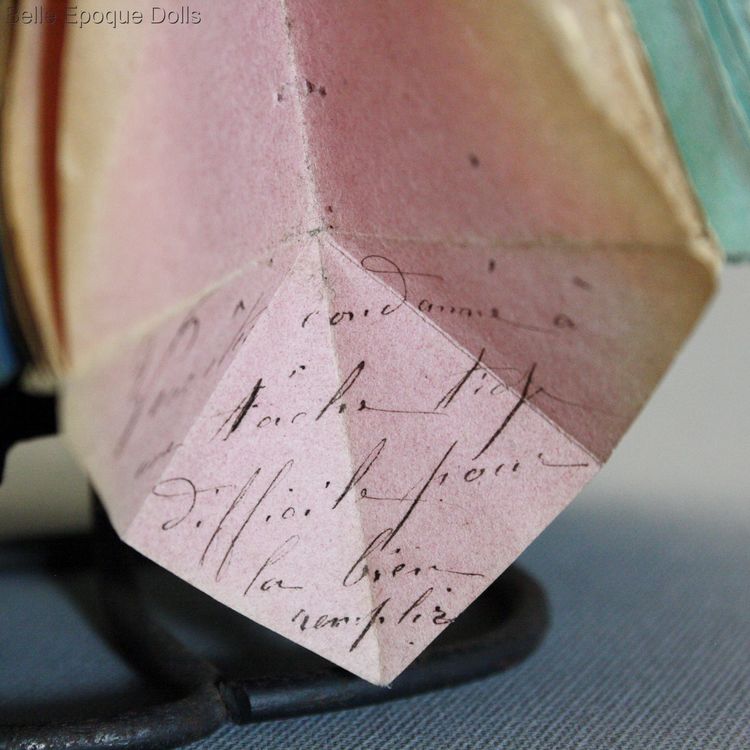 Belle Epoque Dolls
condamne à
tâche trop
difficile pour
la bien
remplir